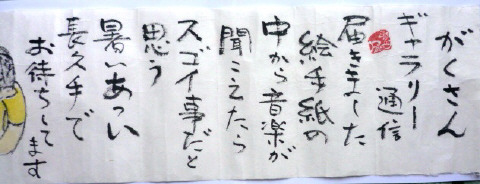 がくさん
ギャラリー通信
届きました
絵手紙の
中から音楽が
聞こえたら
スゴイ事だと
思う
暑いあつい
長え手で
お待ちしてます